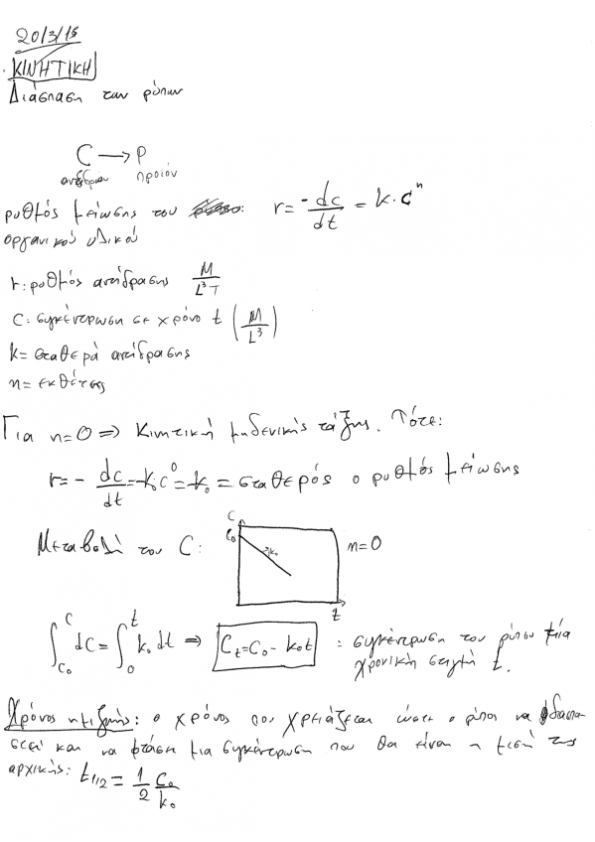 20/3/15
ΚΙΝΗΤΙΚΗ
Διάσπαση των ρύπων
C → P
αντίδρων προϊόν
ρυθμός μείωσης του : r = -dc/dt = k·c^n
οργανικού υλικού
r: ρυθμός αντίδρασης M/L³T
C: συγκέντρωση σε χρόνο t (M/L³)
k = σταθερά αντίδρασης
n = εκθέτης
Για n=0 ⇒ Κινητική μηδενικής τάξης. Τότε:
r = - dc/dt = -k₀c⁰ = -k₀ = σταθερός ο ρυθμός μείωσης
Μεταβολή του C:
C
C₀
-k₀
n=0
t
∫_{C₀}^{C} dC = ∫_{0}^{t} k₀ dt ⇒ C_t = C₀ - k₀t : συγκέντρωση του ρύπου μια
χρονική στιγμή t.
Χρόνος ημιζωής: ο χρόνος που χρειάζεται ώστε ο ρύπος να διασπα-
στεί και να φτάσει μια συγκέντρωση που θα είναι η μισή της
αρχικής: t_{1/2} = 1/2 C₀/k₀